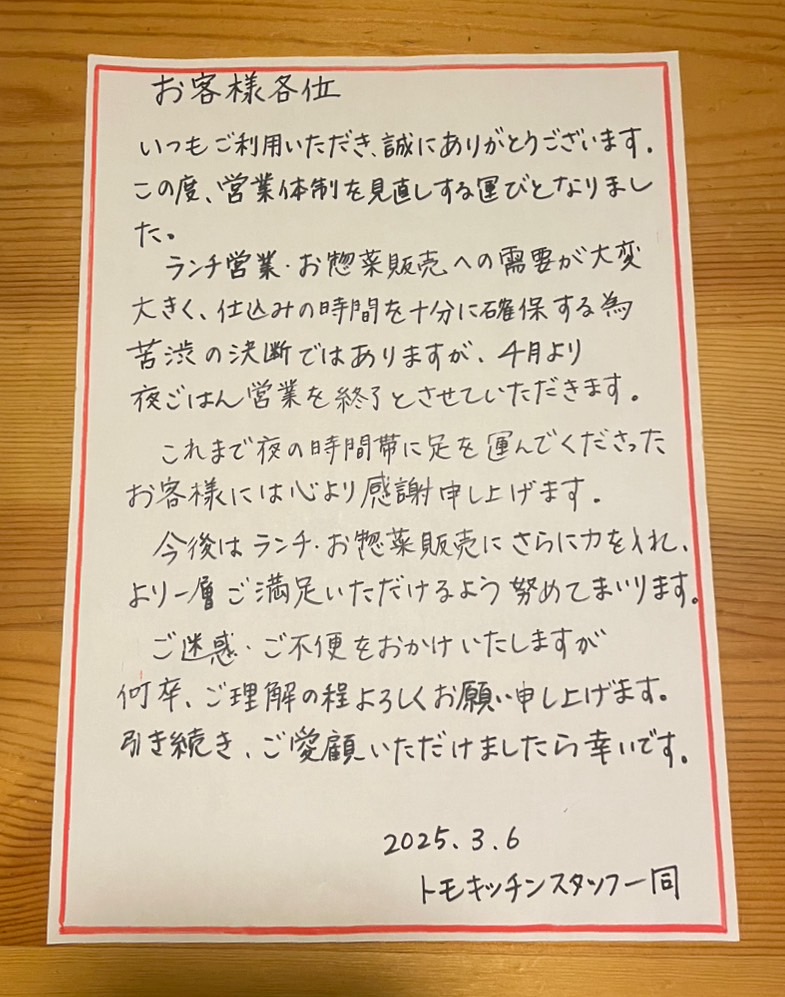 お客様各位
いつもご利用いただき、誠にありがとうございます。
この度、営業体制を見直しする運びとなりまし
た。
ランチ営業・お惣菜販売への需要が大変
大きく、仕込みの時間を十分に確保する為
苦渋の決断ではありますが、4月より
夜ごはん営業を終了とさせていただきます。
これまで夜の時間帯に足を運んでくださった
お客様には心より感謝申し上げます。
今後はランチ・お惣菜販売にさらに力を入れ、
より一層ご満足いただけるよう努めてまいります。
ご迷惑・ご不便をおかけいたしますが
何卒、ご理解の程よろしくお願い申し上げます。
引き続き、ご愛顧いただけましたら幸いです。
2025.3.6
トモキッチンスタッフ一同